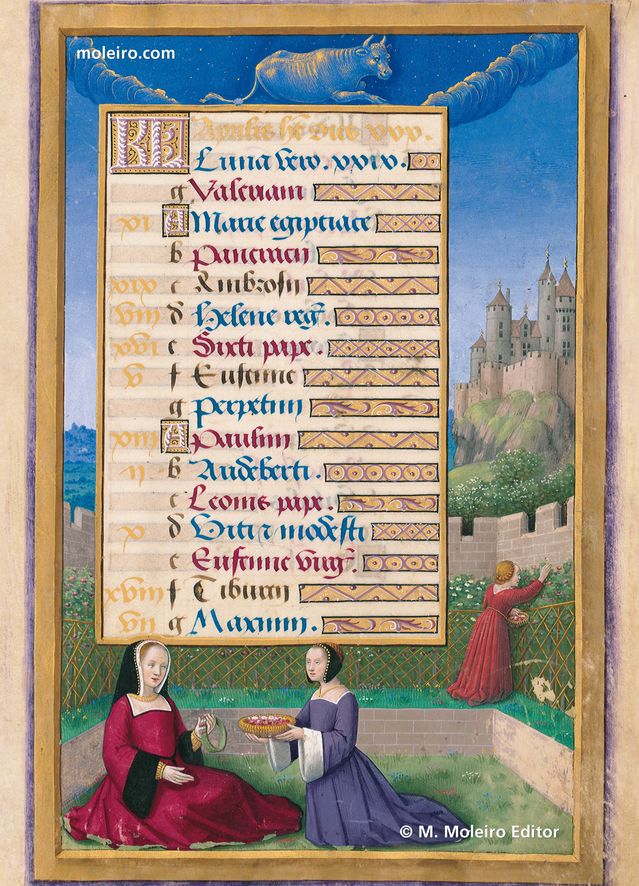 moleiro.com
KL Aprilis ħ dies xxx.
Luna vero. xxix.
g Valeriani
xi A Marie egiptiace
b pancracii
xix c Ambrosii
viii d Helene reg.
xvi e Sixti pape.
v f Eufemie
g perpetuii
xiii A paulini
ii b Audeberti.
c Leonis pape.
x d Viti z modesti
e Eufemie virg.
xviii f Tiburcii
vii g Maximi.
© M. Moleiro Editor